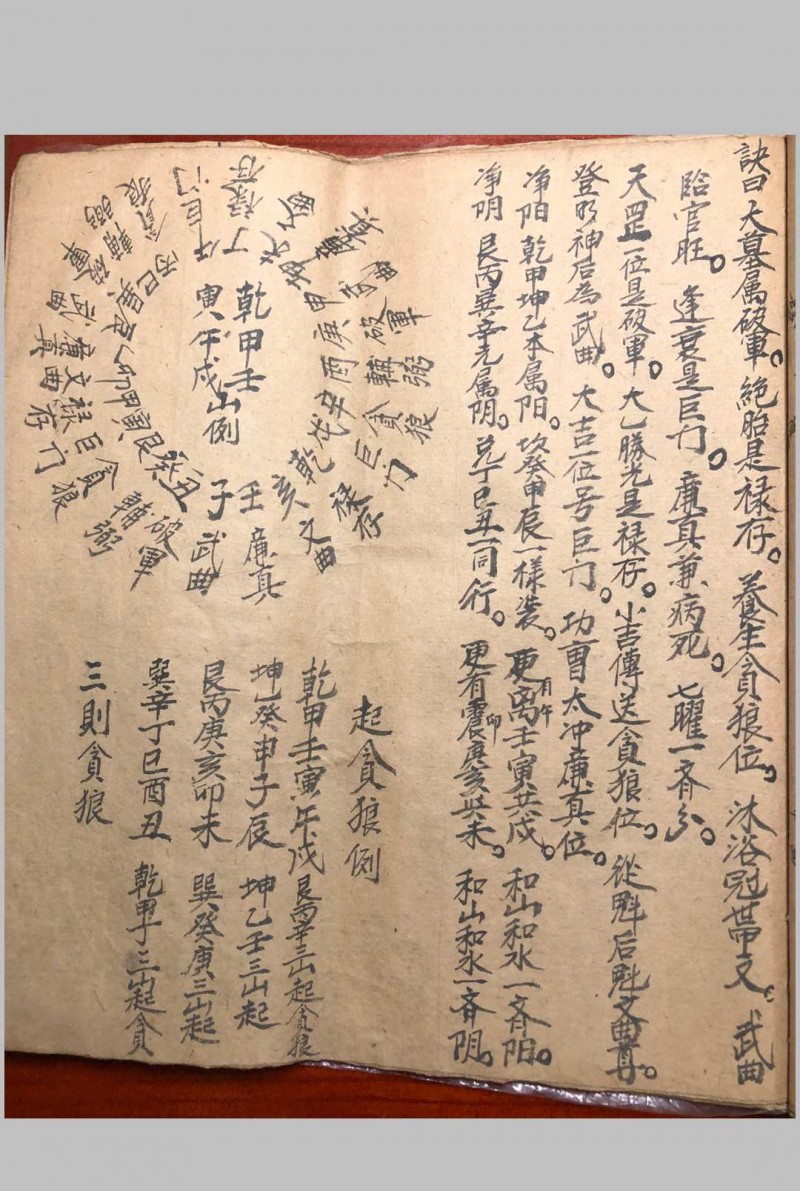 訣曰大墓属破軍。絕胎是禄存。養生貪狼位。沐浴冠帶文。武曲
臨官旺。逢衰是巨门。廉真兼病死。七曜一齊分。
天罡一位是破軍。大乙勝光是禄存。小吉傳送貪狼位。從魁后魁文曲尊。
登明神后為武曲。大吉一位号巨门。功曹太冲廉真位。
净阳乾甲坤乙本属阳。坎癸申辰一样装。更有午离壬寅共戌。和山和水一齊阳。
净阴艮丙巽辛元属阴。兑丁巳丑一同行。更有震卯庚亥與未。和山和水一齊阴。
起貪狼例
乾甲壬寅午戌艮丙辛三山起貪狼
坤乙癸申子辰坤乙壬三山起
艮丙庚亥卯未巽癸庚三山起
巽辛丁巳酉丑乾甲丁三山起貪
三則貪狼
乾甲壬
寅午戌山例
壬廉真
子武曲
丑破軍
癸輔弼
艮貪狼
寅巨门
甲禄存
卯文曲
乙廉真
辰武曲
巽破軍
巳輔弼
丙貪狼
午巨门
丁禄存
坤武曲
庚破軍
酉輔弼
辛貪狼
戌巨门
乾禄存
亥文曲